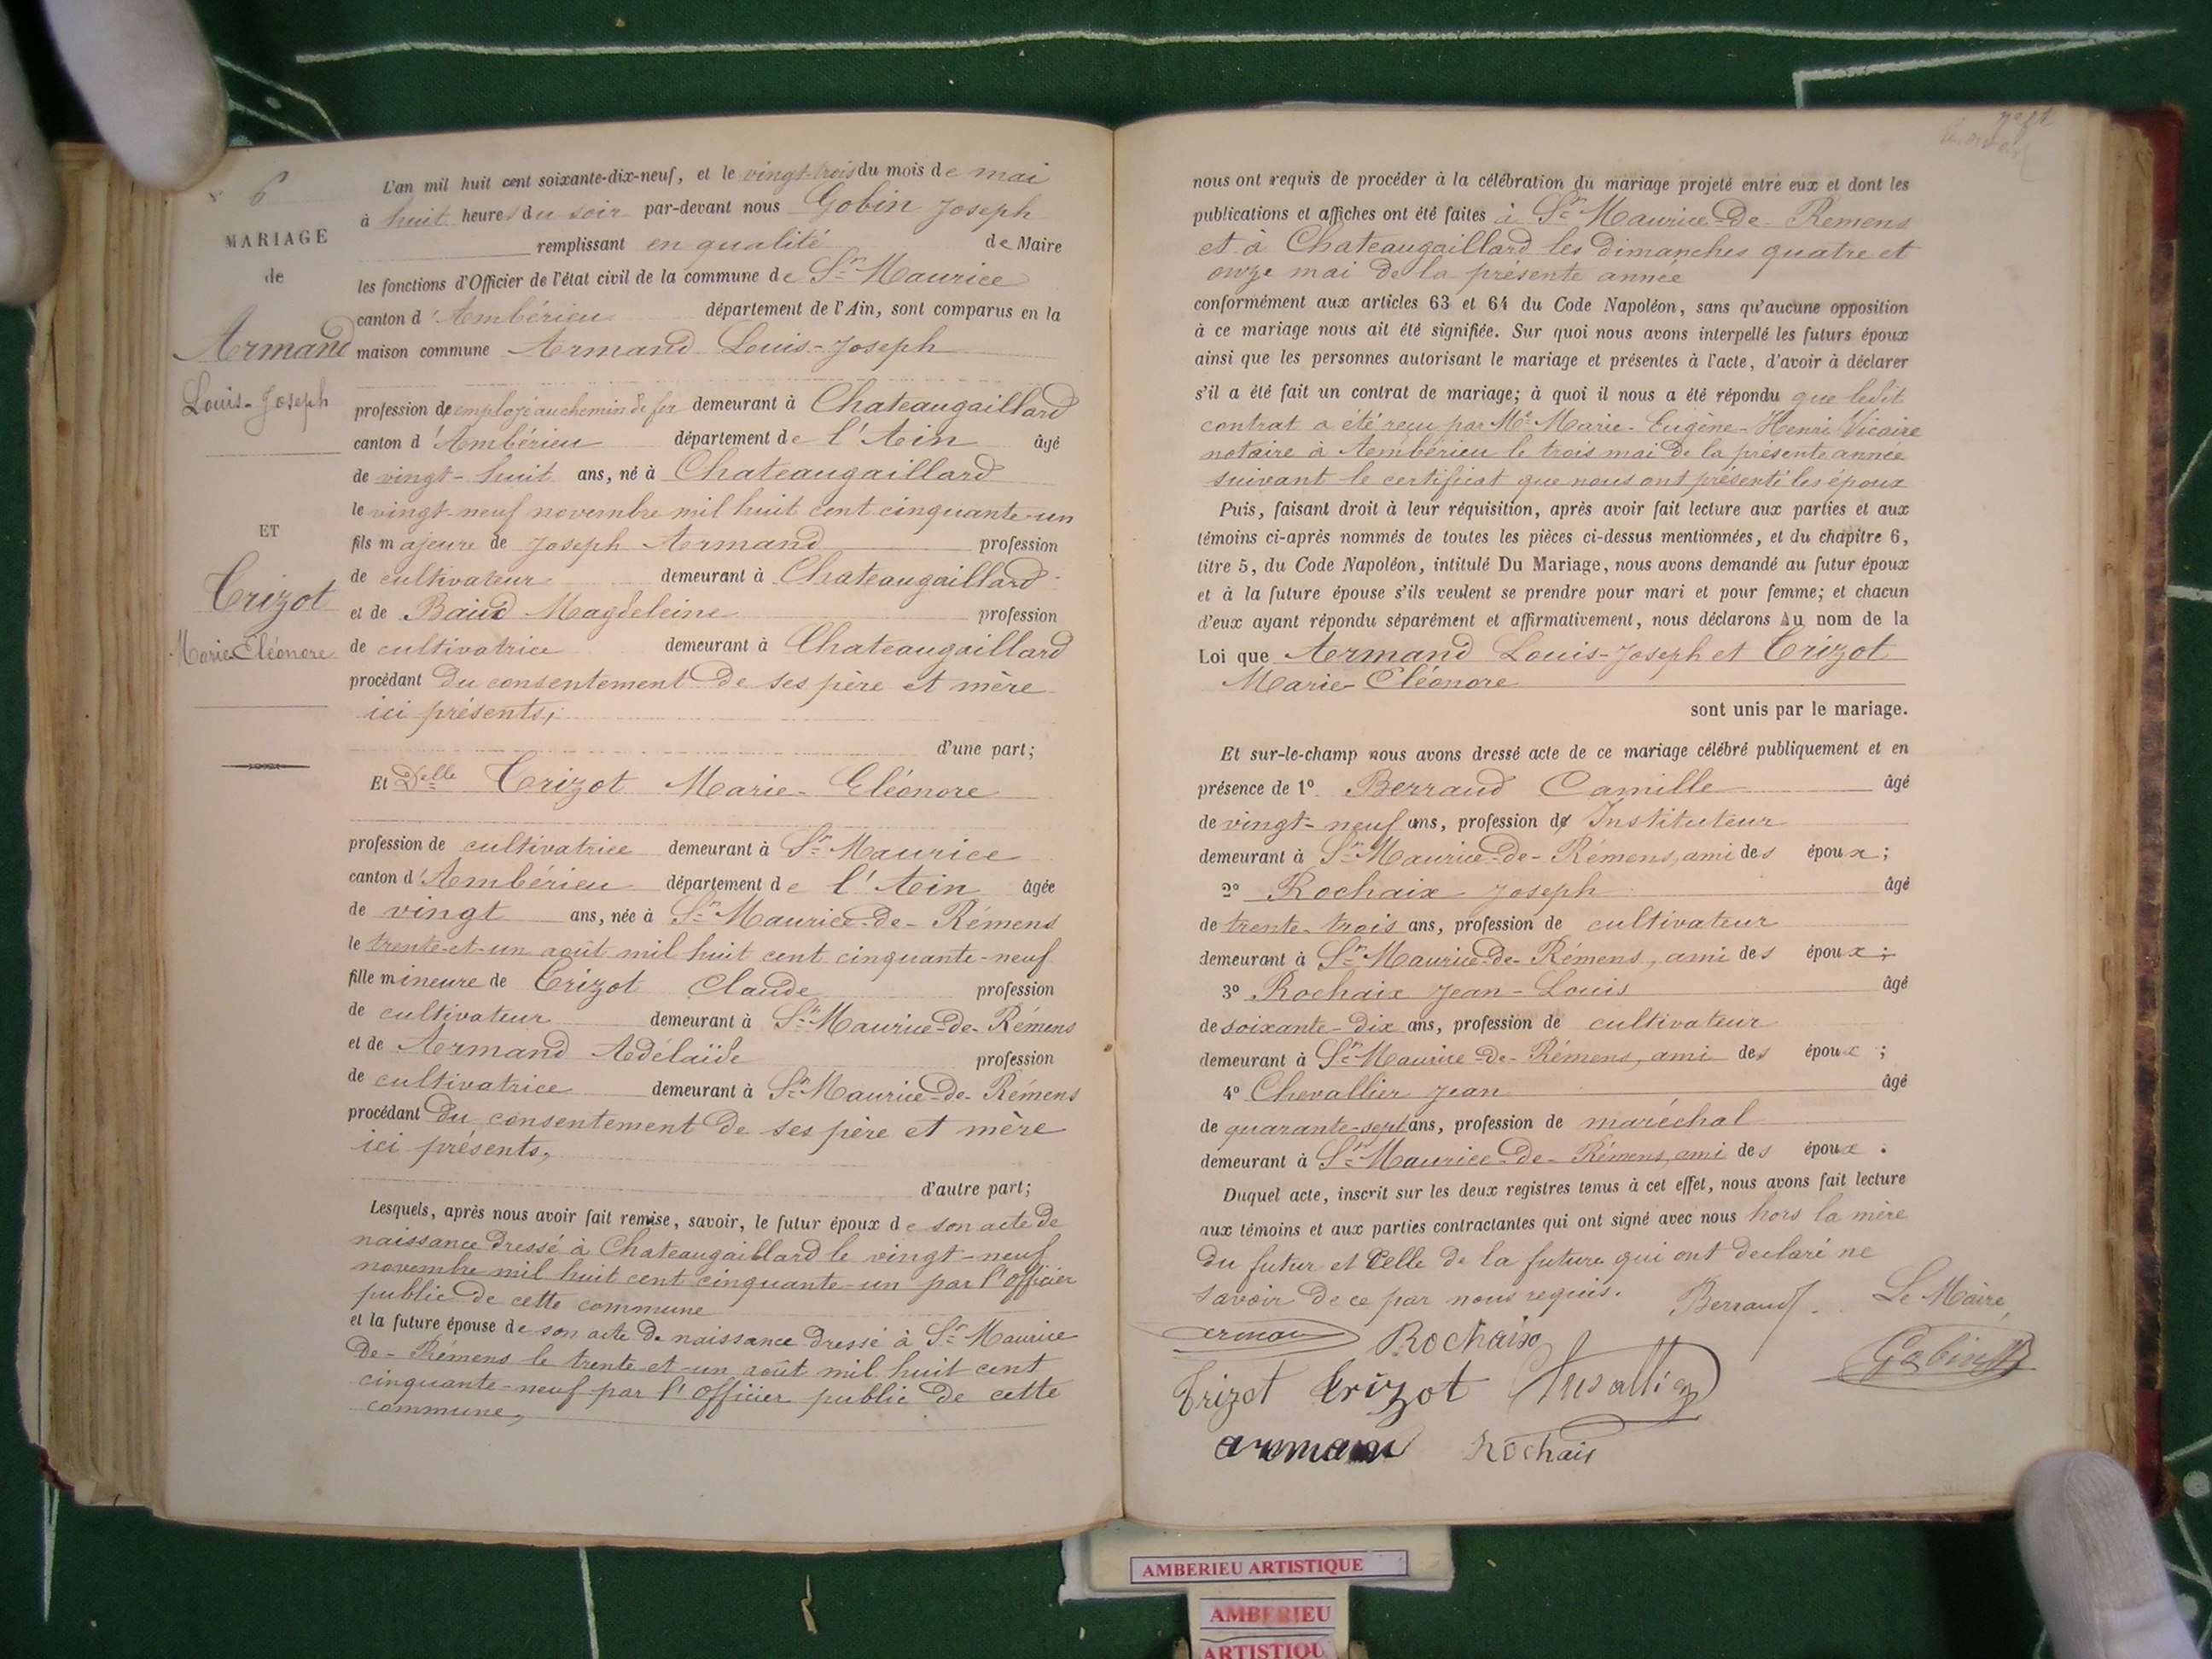 N° 6
MARIAGE
de
Armand
Louis-Joseph
ET
Trizot
Marie Eléonore
L'an mil huit cent soixante-dix-neuf, et le vingt-trois du mois de mai
à huit heures du soir par-devant nous Gobin Joseph
remplissant en qualité de Maire
les fonctions d'Officier de l'état civil de la commune de St Maurice
canton d'Ambérieu département de l'Ain, sont comparus en la
maison commune Armand Louis-Joseph
profession de employé au chemin de fer demeurant à Chateaugaillard
canton d'Ambérieu département de l'Ain âgé
de vingt-huit ans, né à Chateaugaillard
le vingt-neuf novembre mil huit cent cinquante-un
fils majeure de Joseph Armand profession
de cultivateur demeurant à Chateaugaillard
et de Baud Magdeleine profession
de cultivatrice demeurant à Chateaugaillard
procédant du consentement de ses père et mère
ici présents,
d'une part;
Et Delle Trizot Marie-Eléonore
profession de cultivatrice demeurant à St Maurice
canton d'Ambérieu département de l'Ain âgée
de vingt ans, née à St Maurice-de-Rémens
le trente-et-un août mil huit cent cinquante-neuf
fille mineure de Trizot Claude profession
de cultivateur demeurant à St Maurice-de-Rémens
et de Armand Adélaïde profession
de cultivatrice demeurant à St Maurice-de-Rémens
procédant du consentement de ses père et mère
ici présents,
d'autre part;
Lesquels, après nous avoir fait remise, savoir, le futur époux de son acte de
naissance dressé à Chateaugaillard le vingt-neuf
novembre mil huit cent cinquante-un par l'officier
public de cette commune
et la future épouse de son acte de naissance dressé à St Maurice
de-Rémens le trente-et-un août mil huit cent
cinquante-neuf par l'officier public de cette
commune,
nous ont requis de procéder à la célébration du mariage projeté entre eux et dont les
publications et affiches ont été faites à St Maurice-de-Remens
et à Chateaugaillard les dimanches quatre et
onze mai de la présente année
conformément aux articles 63 et 64 du Code Napoléon, sans qu'aucune opposition
à ce mariage nous ait été signifiée. Sur quoi nous avons interpellé les futurs époux
ainsi que les personnes autorisant le mariage et présentes à l'acte, d'avoir à déclarer
s'il a été fait un contrat de mariage; à quoi il nous a été répondu que ledit
contrat a été reçu par Me Marie-Eugène-Henri Vicaire
notaire à Ambérieu le trois mai de la présente année
suivant le certificat que nous ont présenté les époux
Puis, faisant droit à leur réquisition, après avoir fait lecture aux parties et aux
témoins ci-après nommés de toutes les pièces ci-dessus mentionnées, et du chapitre 6,
titre 5, du Code Napoléon, intitulé Du Mariage, nous avons demandé au futur époux
et à la future épouse s'ils veulent se prendre pour mari et pour femme; et chacun
d'eux ayant répondu séparément et affirmativement, nous déclarons Au nom de la
Loi que Armand Louis-Joseph et Trizot
Marie Eléonore
sont unis par le mariage.
Et sur-le-champ nous avons dressé acte de ce mariage célébré publiquement et en
présence de 1° Berraud Camille âgé
de vingt-neuf ans, profession de Instituteur
demeurant à St Maurice-de-Rémens, ami des époux;
2° Rochaix Joseph âgé
de trente-trois ans, profession de cultivateur
demeurant à St Maurice-de-Rémens, ami des époux;
3° Rochaix Jean-Louis âgé
de soixante-dix ans, profession de cultivateur
demeurant à St Maurice-de-Rémens, ami des époux;
4° Chevallier Jean âgé
de quarante-sept ans, profession de maréchal
demeurant à St Maurice-de-Rémens, ami des époux.
Duquel acte, inscrit sur les deux registres tenus à cet effet, nous avons fait lecture
aux témoins et aux parties contractantes qui ont signé avec nous hors la mère
du futur et celle de la future qui ont déclaré ne
savoir de ce par nous requis.
Berraud Le Maire,
Rochaix Gobin
Trizot Trizot
armand Rochaix
AMBERIEU ARTISTIQUE
AMBERIEU
ARTISTIQU